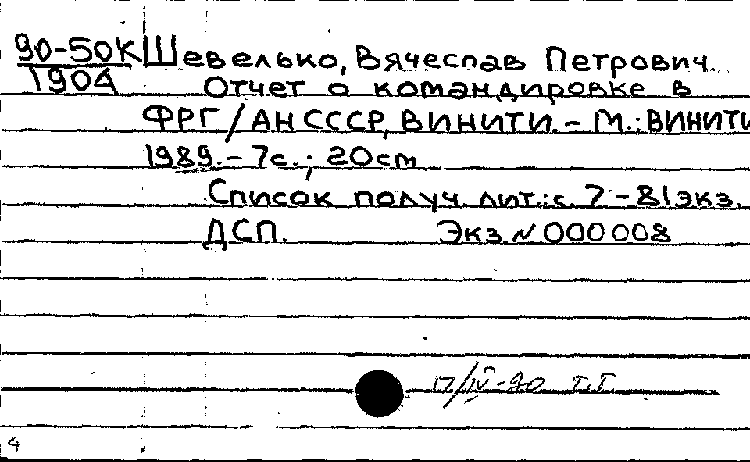 90-50К Шевелько, Вячеслав Петрович.
1904 Отчет о командировке в
ФРГ / АН СССР, ВИНИТИ. - М.: ВИНИТИ
1989. - 7с.; 20см
Список получ. лит.: с. 7 - 81экз.
ДСП. Экз. № 000008
17/IV-90 Т.Г.
4